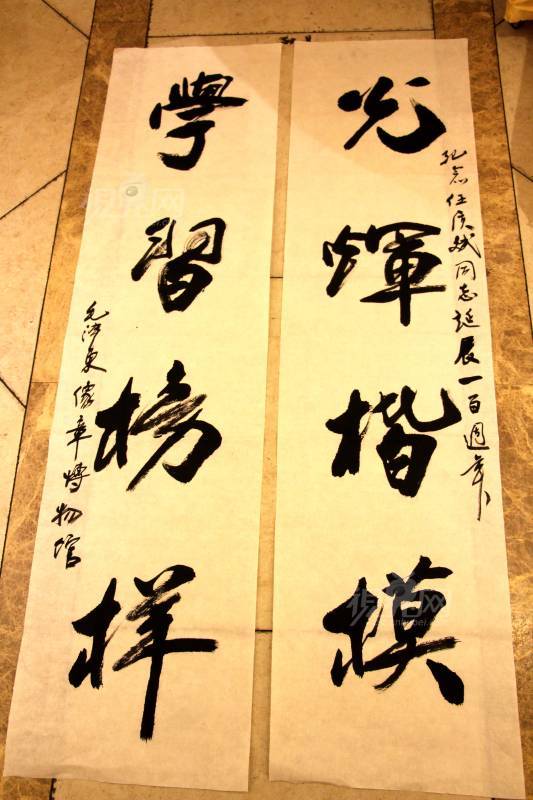 纪念任质斌同志诞辰一百週年
光輝楷模
學習榜样
毛泽东像章博物馆